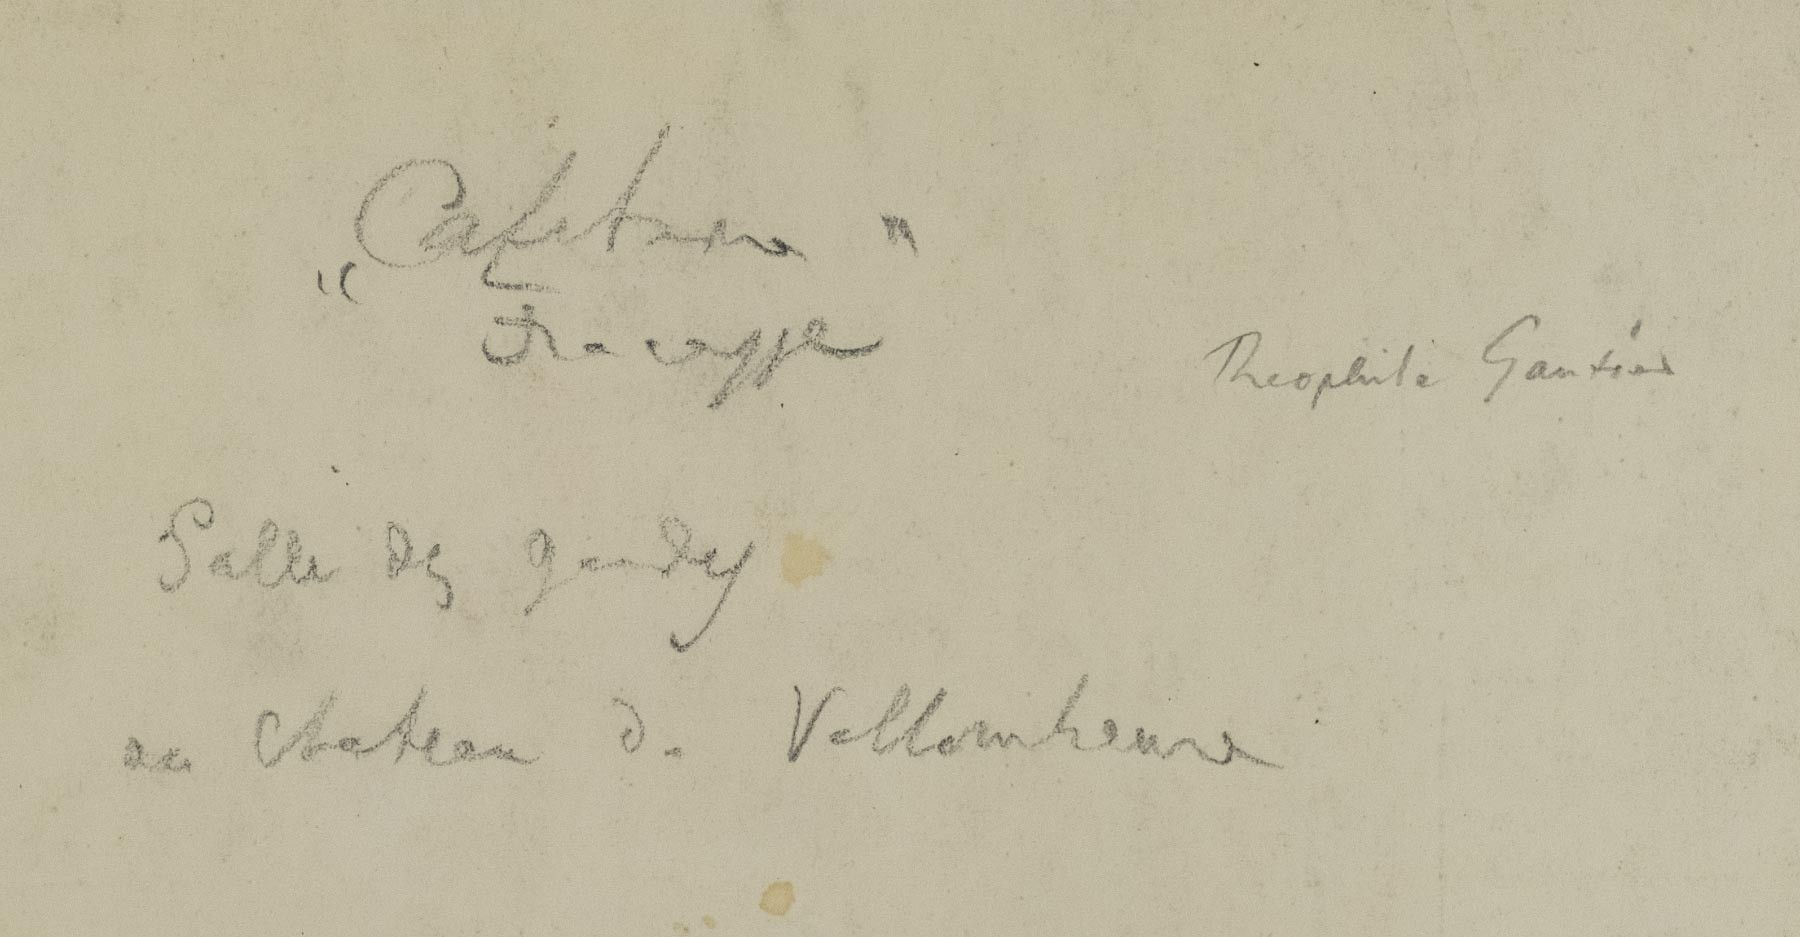 „Capitaine"
Fracasse
Theophile Gautier
Salle des gardes
au chateau de Vallombreuse